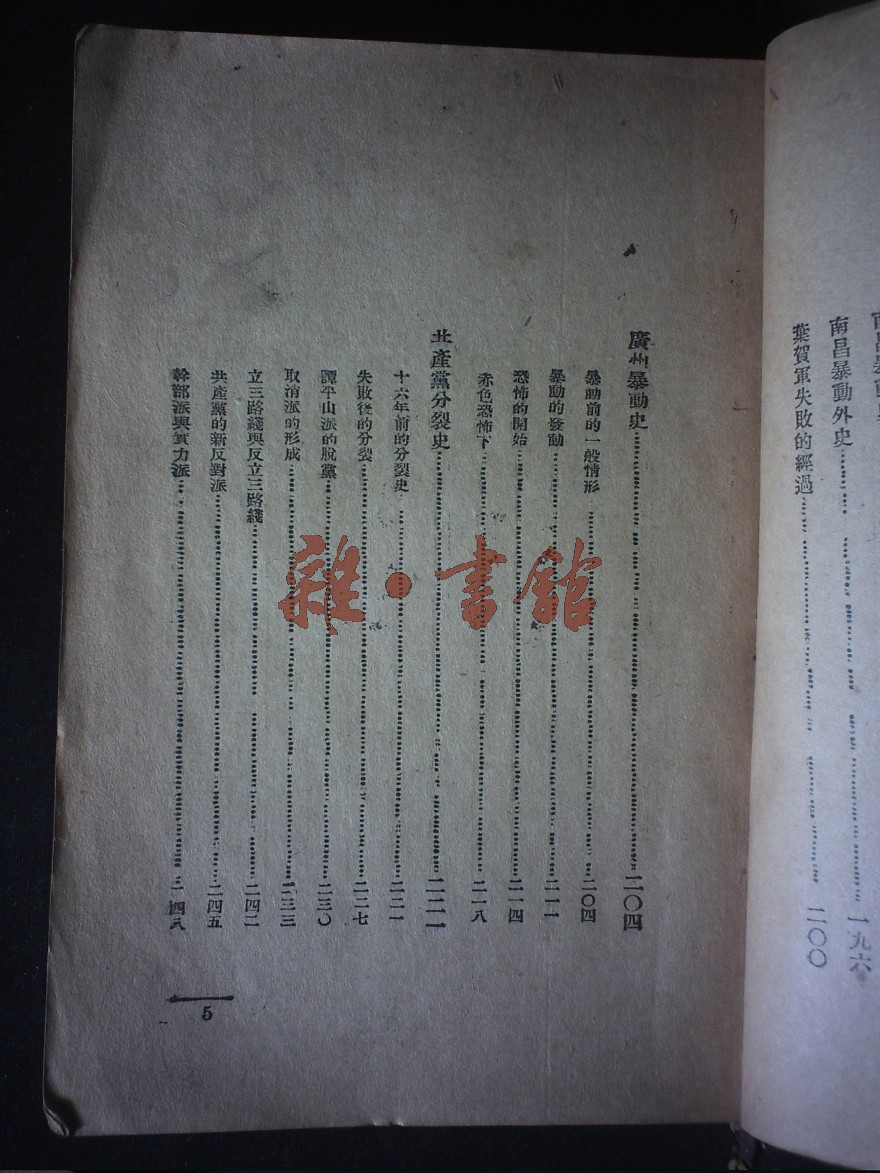 南昌暴動外史 一九六
葉賀軍失敗的經過 二〇〇
廣州暴動史 二〇四
暴動前的一般情形 二〇四
暴動的發動 二一一
恐怖的開始 二一四
赤色恐怖下 二一八
共產黨分裂史 二二一
十六年前的分裂史 二二一
失敗後的分裂 二二七
譚平山派的脫黨 二三〇
取消派的形成 二三三
立三路綫與反立三路綫 二四二
共產黨的新反對派 二四五
幹部派與實力派 二四八
5
雜·書館